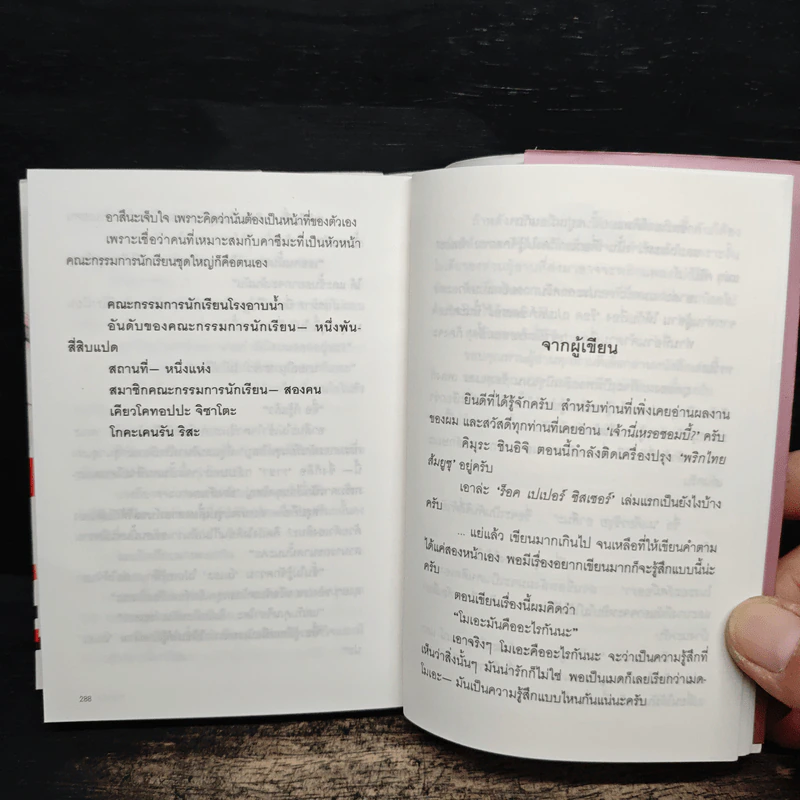 อาสึนะเจ็บใจ เพราะคิดว่านั่นต้องเป็นหน้าที่ของตัวเอง
เพราะเชื่อว่าคนที่เหมาะสมกับคาซึมะที่เป็นหัวหน้า
คณะกรรมการนักเรียนชุดใหญ่ก็คือตนเอง
คณะกรรมการนักเรียนโรงอาบน้ำ
อันดับของคณะกรรมการนักเรียน— หนึ่งพัน-
สี่สิบแปด
สถานที่— หนึ่งแห่ง
สมาชิกคณะกรรมการนักเรียน— สองคน
เคียวโคทอปปะ จิซาโตะ
โกคะเคนรัน ริสะ
288
จากผู้เขียน
ยินดีที่ได้รู้จักครับ สำหรับท่านที่เพิ่งเคยอ่านผลงาน
ของผม และสวัสดีทุกท่านที่เคยอ่าน ‘เจ้านี่เหรอซอมบี้?’ ครับ
คิมุระ ชินอิจิ ตอนนี้กำลังติดเครื่องปรุง ‘พริกไทย
ส้มยูซุ’ อยู่ครับ
เอาล่ะ ‘ร็อค เปเปอร์ ซิสเซอร์’ เล่มแรกเป็นยังไงบ้าง
ครับ
... แย่แล้ว เขียนมากเกินไป จนเหลือที่ให้เขียนคำตาม
ได้แค่สองหน้าเอง พอมีเรื่องอยากเขียนมากก็จะรู้สึกแบบนี้น่ะ
ครับ
ตอนเขียนเรื่องนี้ผมคิดว่า
“โมเอะมันคืออะไรกันนะ”
เอาจริงๆ โมเอะคืออะไรกันนะ จะว่าเป็นความรู้สึกที่
เห็นว่าสิ่งนั้นๆ มันน่ารักก็ไม่ใช่ พอเป็นเมดก็เลยเรียกว่าเมด-
โมเอะ— มันเป็นความรู้สึกแบบไหนกันแน่นะครับ